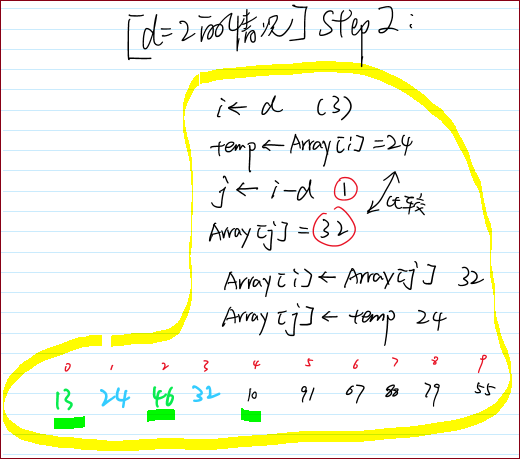 [d=2的情况] Step 2:
i ← d (3)
temp ← Array[i] = 24
j ← i-d 1
比较
Array[j] = 32
Array[i] ← Array[j] 32
Array[j] ← temp 24
0 1 2 3 4 5 6 7 8 9
13 24 46 32 10 91 67 80 79 55